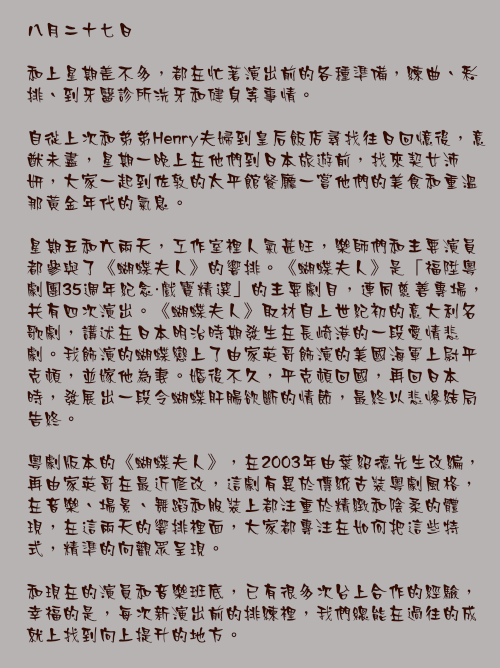 八月二十七日
和上星期差不多，都在忙著演出前的各種準備，練曲、彩
排、到牙醫診所洗牙和健身等事情。
自從上次和弟弟Henry夫婦到皇后飯店尋找往日回憶後，意
猶未盡，星期一晚上在他們到日本旅遊前，找來契女沛
妍，大家一起到佐敦的太平館餐廳一嘗他們的美食和重溫
那黃金年代的氣息。
星期五和六兩天，工作室裡人氣甚旺，樂師們和主要演員
都參與了《蝴蝶夫人》的響排。《蝴蝶夫人》是「福陞粵
劇團35週年紀念·戲寶精選」的主要劇目，連同慈善專場，
共有四次演出。《蝴蝶夫人》取材自上世紀初的意大利名
歌劇，講述在日本明治時期發生在長崎港的一段愛情悲
劇。我飾演的蝴蝶戀上了由家英哥飾演的美國海軍上尉平
克頓，並嫁他為妻。婚後不久，平克頓回國，再回日本
時，發展出一段令蝴蝶肝腸欲斷的情節，最終以悲慘結局
告終。
粵劇版本的《蝴蝶夫人》，在2003年由葉紹德先生改編，
再由家英哥在最近修改，這劇有異於傳統古裝粵劇風格，
在音樂、場景、舞蹈和服裝上都注重於精緻和陰柔的體
現，在這兩天的響排裡面，大家都專注在如何把這些特
式，精準的向觀眾呈現。
和現在的演員和音樂班底，已有很多次台上合作的經驗，
幸福的是，每次新演出前的排練裡，我們總能在過往的成
就上找到向上提升的地方。